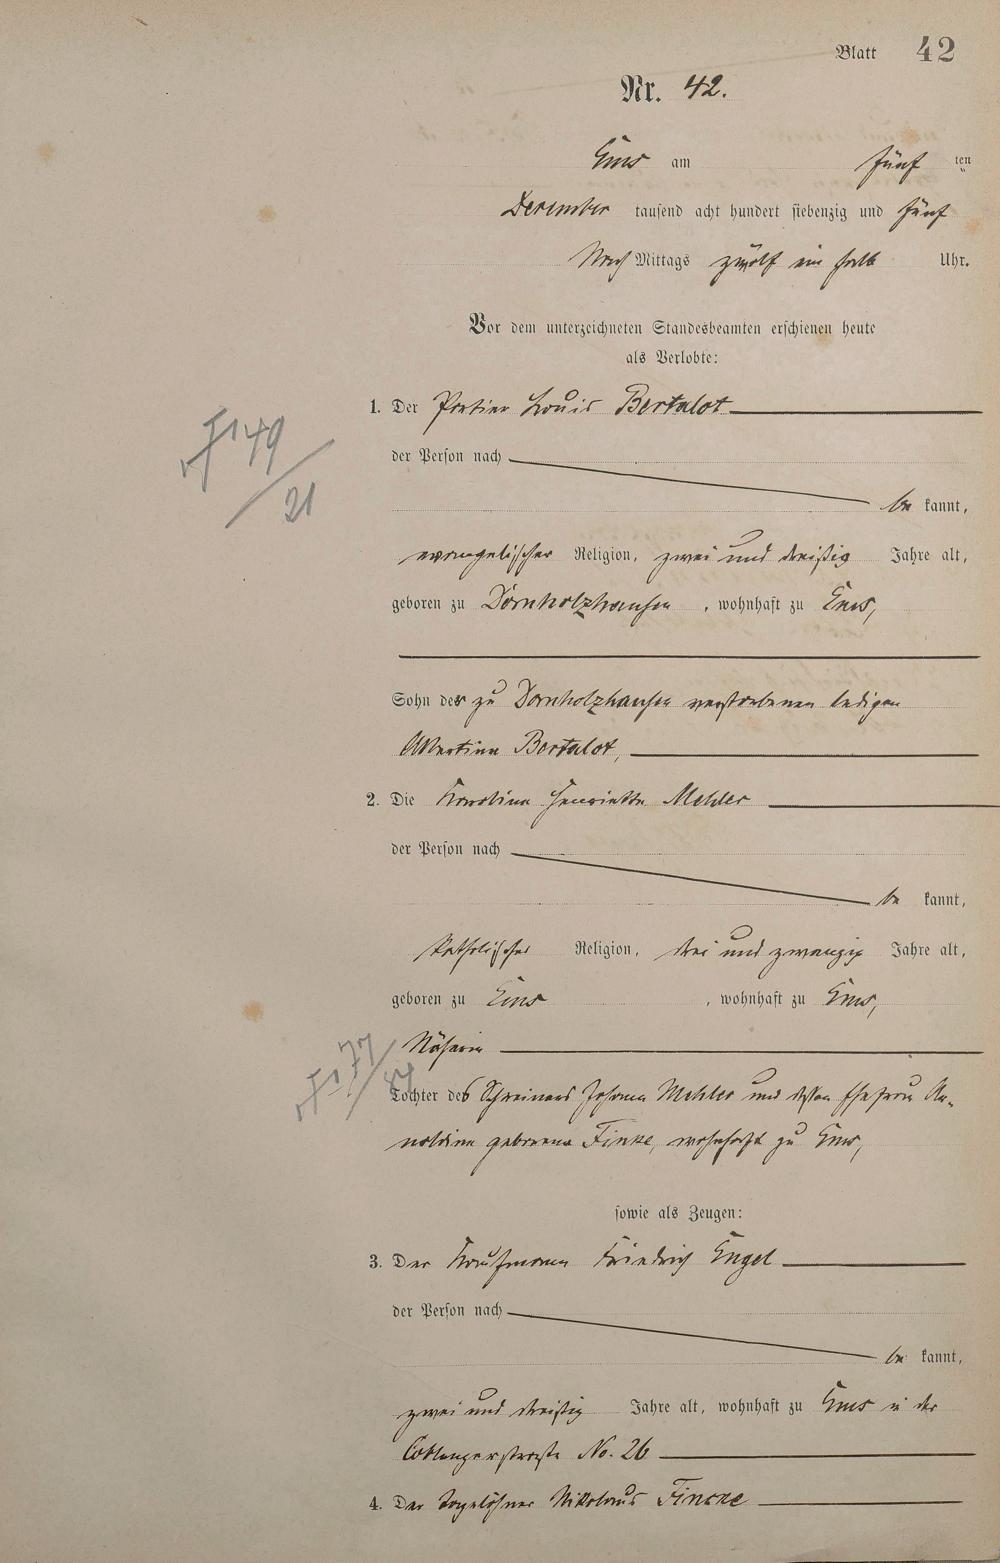 Blatt 42
Nr. 42.
Ems am fünf ten
December tausend acht hundert siebenzig und fünf
Nach Mittags zwölf ein halb Uhr.
Vor dem unterzeichneten Standesbeamten erschienen heute
als Verlobte:
1. Der Portier Louis Bertalot
der Person nach
be kannt,
evangelischer Religion, zwei und dreißig Jahre alt,
geboren zu Dornholzhausen, wohnhaft zu Ems,
Sohn der zu Dornholzhausen verstorbenen ledigen
Albertine Bertalot,
2. Die Karolina Henriette Mehler
der Person nach
be kannt,
katholischer Religion, drei und zwanzig Jahre alt,
geboren zu Ems, wohnhaft zu Ems,
Näherin
Tochter des Schreiners Johann Mehler und dessen Ehefrau Ar-
noldine geborene Finke, wohnhaft zu Ems,
sowie als Zeugen:
3. Der Kaufmann Friedrich Engel
der Person nach
be kannt,
zwei und dreißig Jahre alt, wohnhaft zu Ems in der
Coblenzerstraße No. 26
4. Der Tagelöhner Nikolaus Fincke
49
21
77